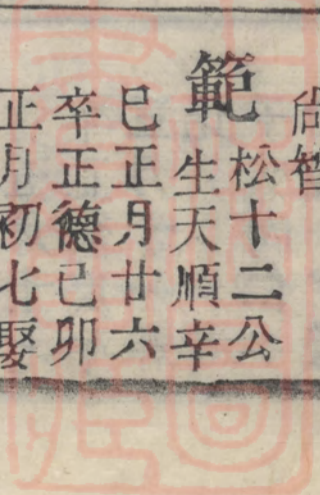 尚智
範
松十二公
生天順辛
巳正月廿六
卒正德己卯
正月初七娶